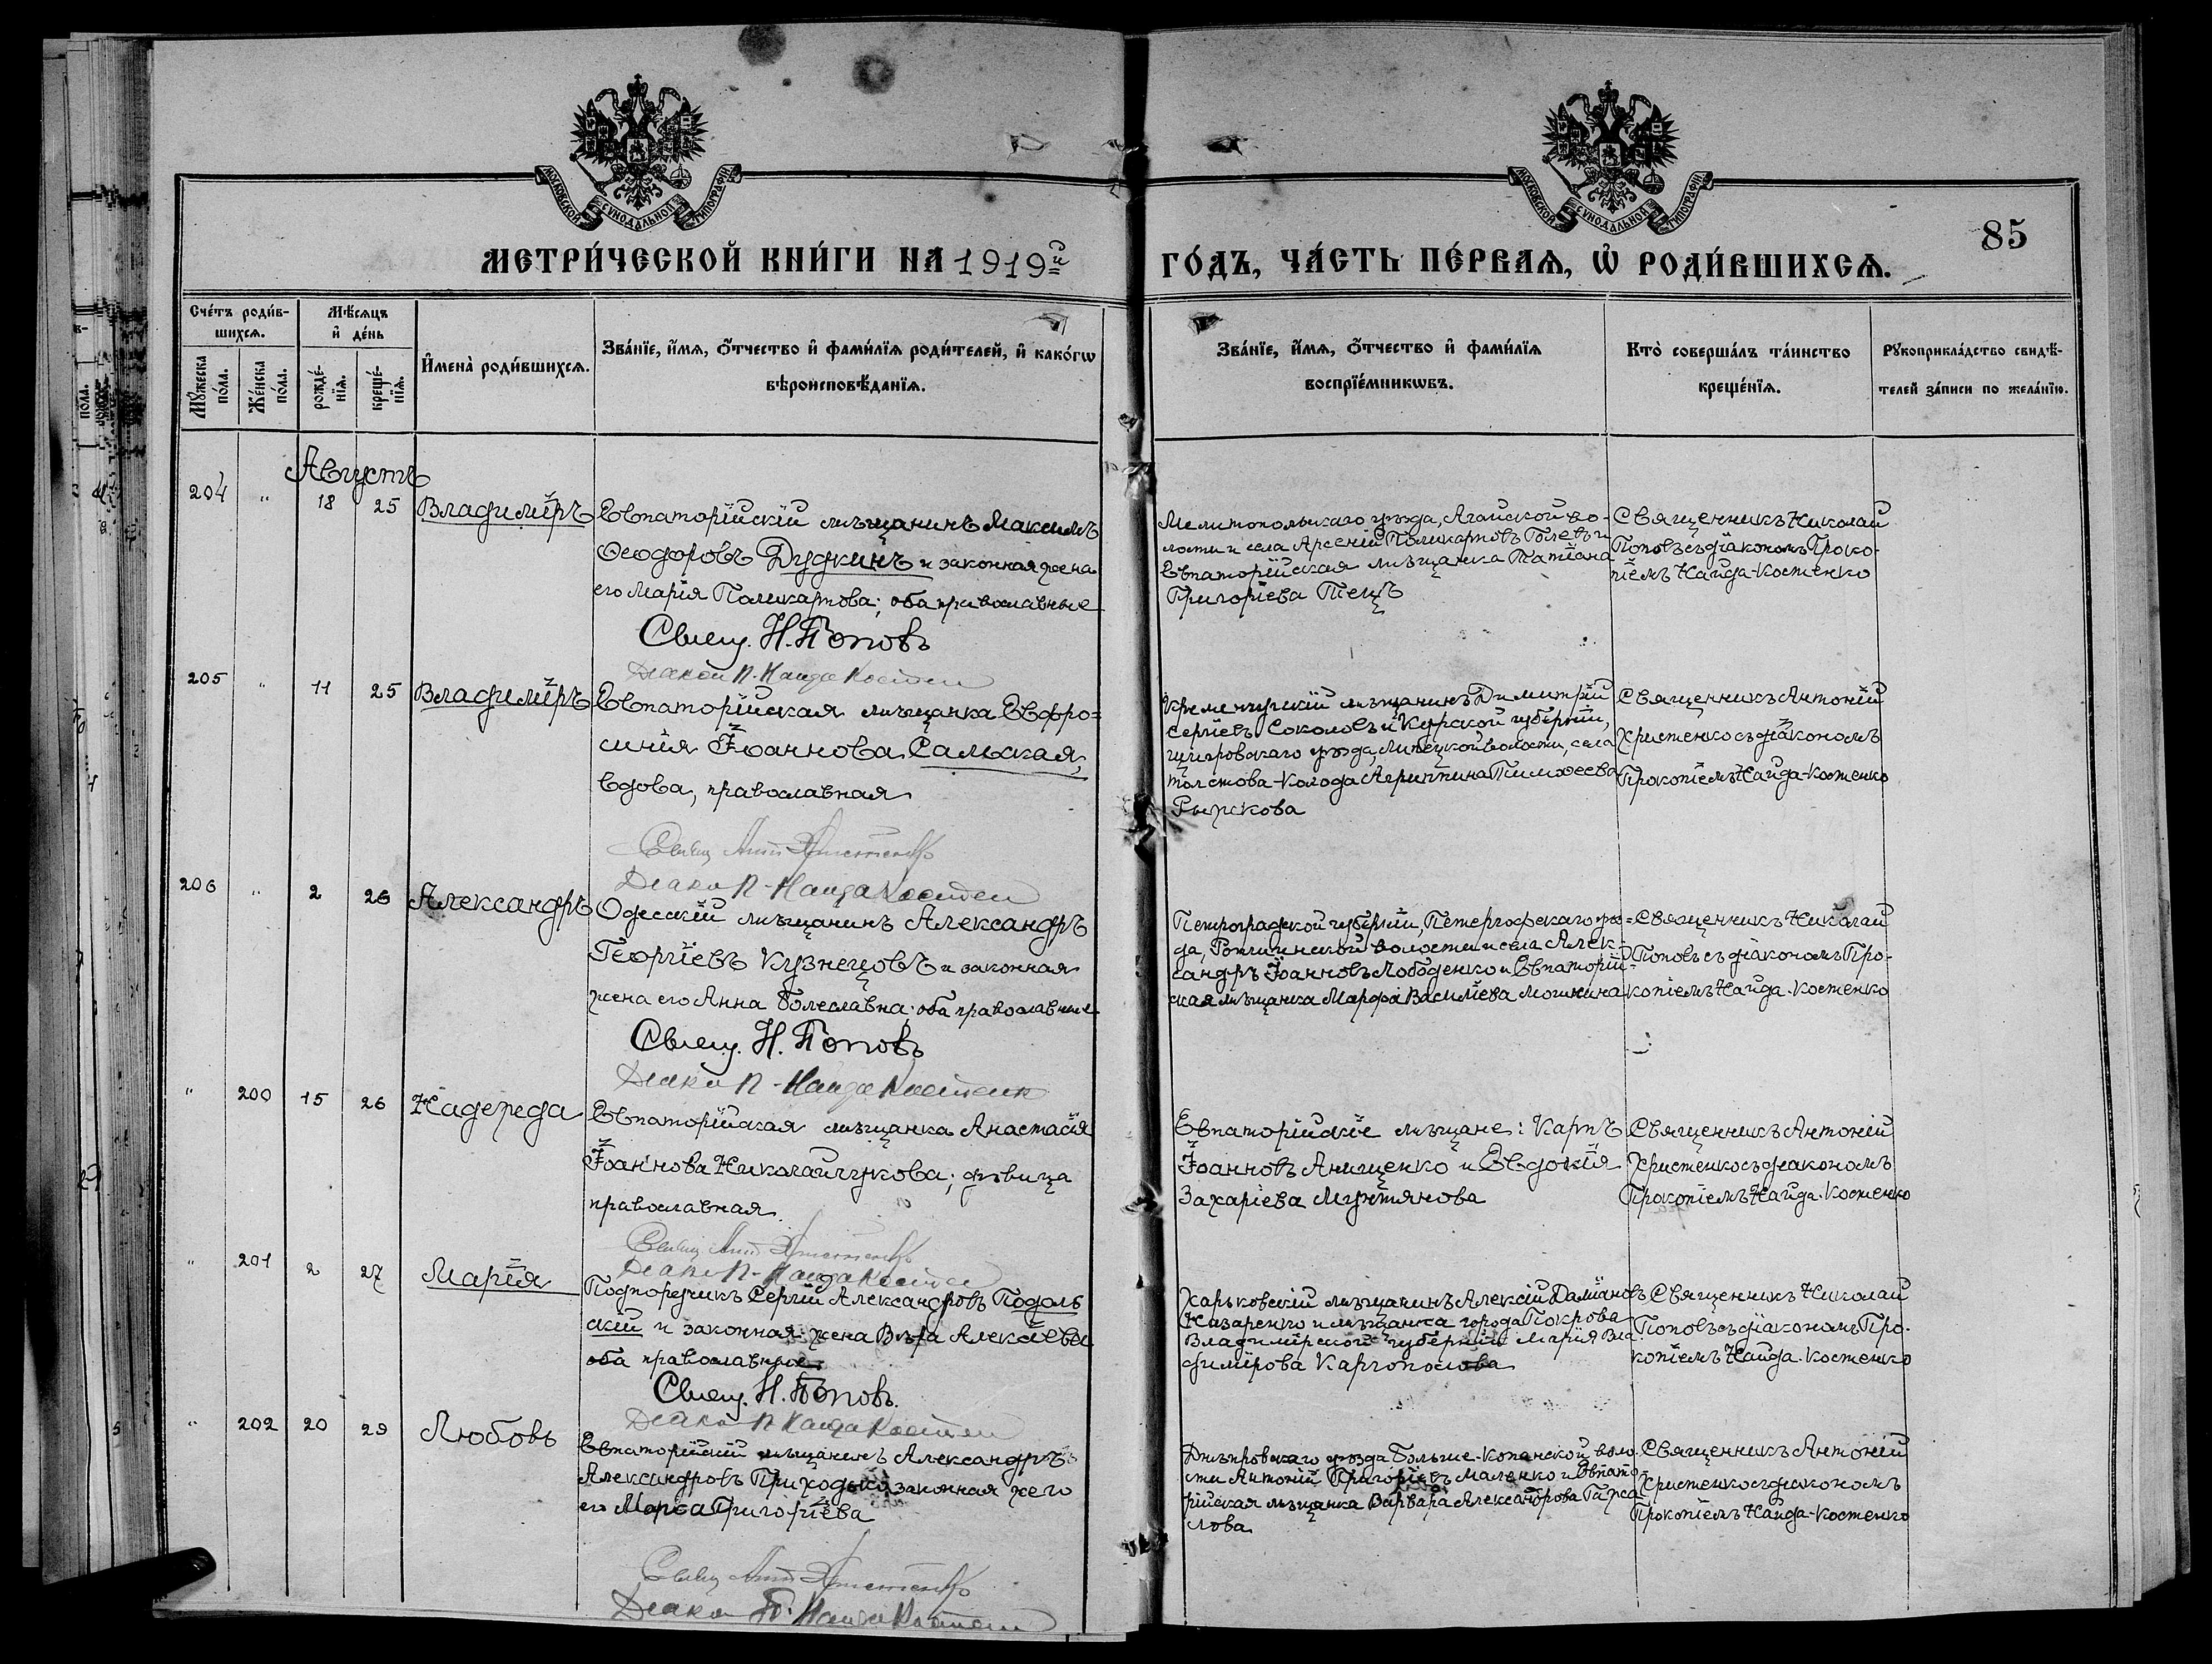 МОСКОВСКОЙ СѴНОДАЛЬНОЙ ТИПОГРАФІИ
МОСКОВСКОЙ СѴНОДАЛЬНОЙ ТИПОГРАФІИ
85
МЕТРИ́ЧЕСКОЙ КНИ́ГИ НА 1919й
ГО́ДЪ, ЧА́СТЬ ПЕ́РВАѦ, Ѡ҆ РОДИ́ВШИХСѦ.
Сче́тъ роди́в-
шихсѧ.
Мꙋ́жеска по́ла.
Же́нска по́ла.
Мѣ́сѧцъ
и҆ де́нь
рожде́-
нїѧ.
креще́-
нїѧ.
И҆мена̀ роди́вшихсѧ.
Зва́нїе, и҆́мѧ, ѻ҆́тчество и҆ фами́лїѧ роди́телей, и҆ како́гѡ
вѣроисповѣ́данїѧ.
Зва́нїе, и҆́мѧ, ѻ҆́тчество и҆ фами́лїѧ
воспрїе́мникѡвъ.
Кто̀ соверша́лъ та́инство
креще́нїѧ.
Рꙋкоприкла́дство свидѣ́-
телей за́писи по жела́нїю.
Августъ
204 " 18 25 Владиміръ
Евпаторійскій мѣщанинъ Максимъ
Ѳеодоровъ Дудкинъ и законная жена
его Марія Поликарпова; оба православные
Свящ. Н. Поповъ
Діакон П. Найда Костен
Мелитопольскаго уѣзда, Агайской во-
лости и села Арсеній Поликарповъ и
Евпаторійская мѣщанка Татіана
Григоріева Тещъ
Священникъ Николай
Поповъ съ діакономъ Проко-
піемъ Найда-Костенко
205 " 11 25 Владиміръ
Евпаторійская мѣщанка Евфро=
синія Іоаннова Сальская,
вдова, православная
Свящ Ант Христенко
Діакон П. Найда Костен
Кременчугскій мѣщанинъ Димитрій
Сергіевъ Соколовъ и Курской губерніи,
Щигровскаго уѣзда, Липецкой волости, села
Толстова-Колода Агриппина Тимоѳеева
Рыжкова
Священникъ Антоній
Христенко съ діакономъ
Прокопіемъ Найда-Костенко
206 " 2 26 Александръ
Одесскій мѣщанинъ Александръ
Георгіевъ Кузнецовъ и законная
жена его Анна Болеславна; оба православные
Свящ. Н. Поповъ
Діакон П. Найда Костенк
Петроградской губерніи, Петергофскаго уѣз=
да, волости и села Алек-
сандръ Іоанновъ Лободенко и Евпаторій-
ская мѣщанка Марфа Василіева Мошкина
Священникъ Николай
Поповъ съ діакономъ Про-
копіемъ Найда-Костенко
" 200 15 26 Надежда
Евпаторійская мѣщанка Анастасія
Іоаннова Николайчукова; дѣвица
православная.
Свящ Ант Христенко
Діакон П. Найда Костен
Евпаторійскіе мѣщане: Карпъ
Іоанновъ Анищенко и Евдокія
Захаріева Мунтянова
Священникъ Антоній
Христенко съ діакономъ
Прокопіемъ Найда-Костенко
" 201 2 27 Марія
Подпоручикъ Сергій Александровъ Подоль
скій и законная жена Вѣра Алексѣева
оба православные
Свящ. Н. Поповъ.
Діакон П. Найда Костен
Харьковскій мѣщанинъ Алексій Даміановъ
Назаренко и мѣщанка города Покрова
Владимірской губерніи Марія Вла-
димірова Каргополова
Священникъ Николай
Поповъ съ діакономъ Про-
копіемъ Найда-Костенко
" 202 20 29 Любовь
Евпаторійскій мѣщанинъ Александръ
Александровъ Приходько законная жего
его Марѳа Григоріева
Свящ Ант Христенко
Діакон П. Найда Костен
Днѣпровскаго уѣзда Больше-Копанской воло-
сти Антоній Григоріевъ Маленко и Евпато-
рійская мѣщанка Варвара Александрова
Священникъ Антоній
Христенко съ діакономъ
Прокопіемъ Найда-Костенко